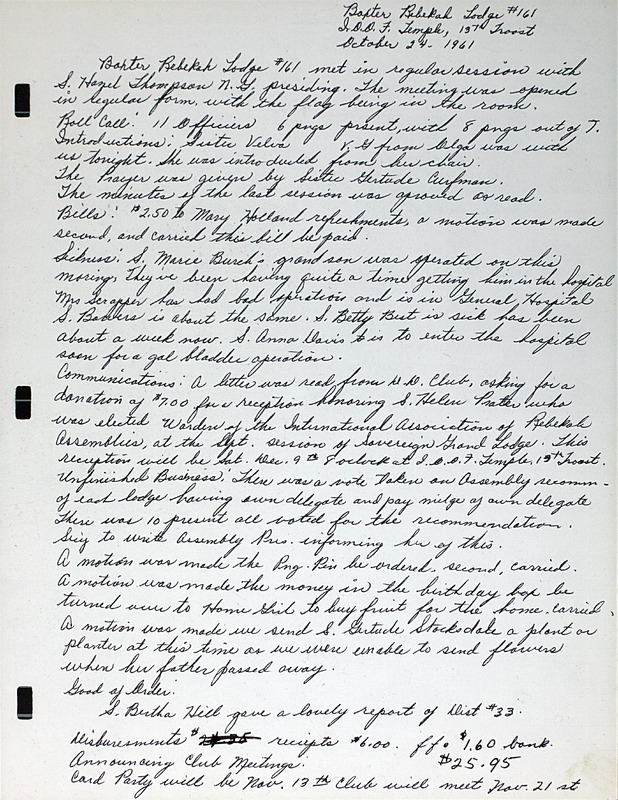 Baxter Rebekah Lodge #161
I.O.O.F. Temple, 13th Troost
October 24 - 1961
Baxter Rebekah Lodge #161 met in regular session with
S. Hazel Thompson N.G, presiding. The meeting was opened
in regular form, with the flag being in the room.
Roll Call: 11 Officers 6 pngs present, with 8 pngs out of 7.
Introductions: Sister Velva V.G from Olga was with
us tonight. She was introducted from her chair.
The Prayer was given by Sister Gertude Curfman.
The minutes of the last session was aproved as read.
Bills: $2.50 to Mary Holland refreshments, a motion was made
second, and carried this bill be paid.
Sickness: S. Marie Burch's grandson was operated on this
moring, They've been having quite a time getting him in the hospital
Mrs Scrapper has had bad operation and is in General Hospital
S. Bowers is about the same. S. Betty Best is sick has been
about a week now. S. Anna Davis is to enter the hospital
soon for a gal bladder operation.
Communications: A letter was read from D.D. Club, asking for a
donation of $7.00 for a reception honoring S. Helen Prater who
was elected Warden of the International Association of Rebekah
Assemblies, at the Sept. session of Sovereign Grand Lodge. This
reception will be Sat. Dec. 9th 8 oclock at I.O.O.F. Temple, 13th Troost.
Unfinished Business. There was a vote taken on Assembly recomm-
of each lodge having own delegate and pay milge of own delegate
There was 10 present all voted for the recommendation.
Secy to write Assembly Pres. informing her of this.
A motion was made the Png. Pin be ordered, second, carried.
A motion was made the money in the birthday box be
turned over to Home Grid to buy fruit for the home. carried.
A motion was made we send S. Gertude Stocksdale a plant or
planter at this time as we were unable to send flowers
when her father passed away.
Good of Order.
S. Bertha Hill gave a lovely report of Dist #33.
Disbursments $ reciepts $6.00. ffo $1.60 bank.
$25.95
Announcing Club Meetings:
Card Party will be Nov. 13th Club will meet Nov. 21 st